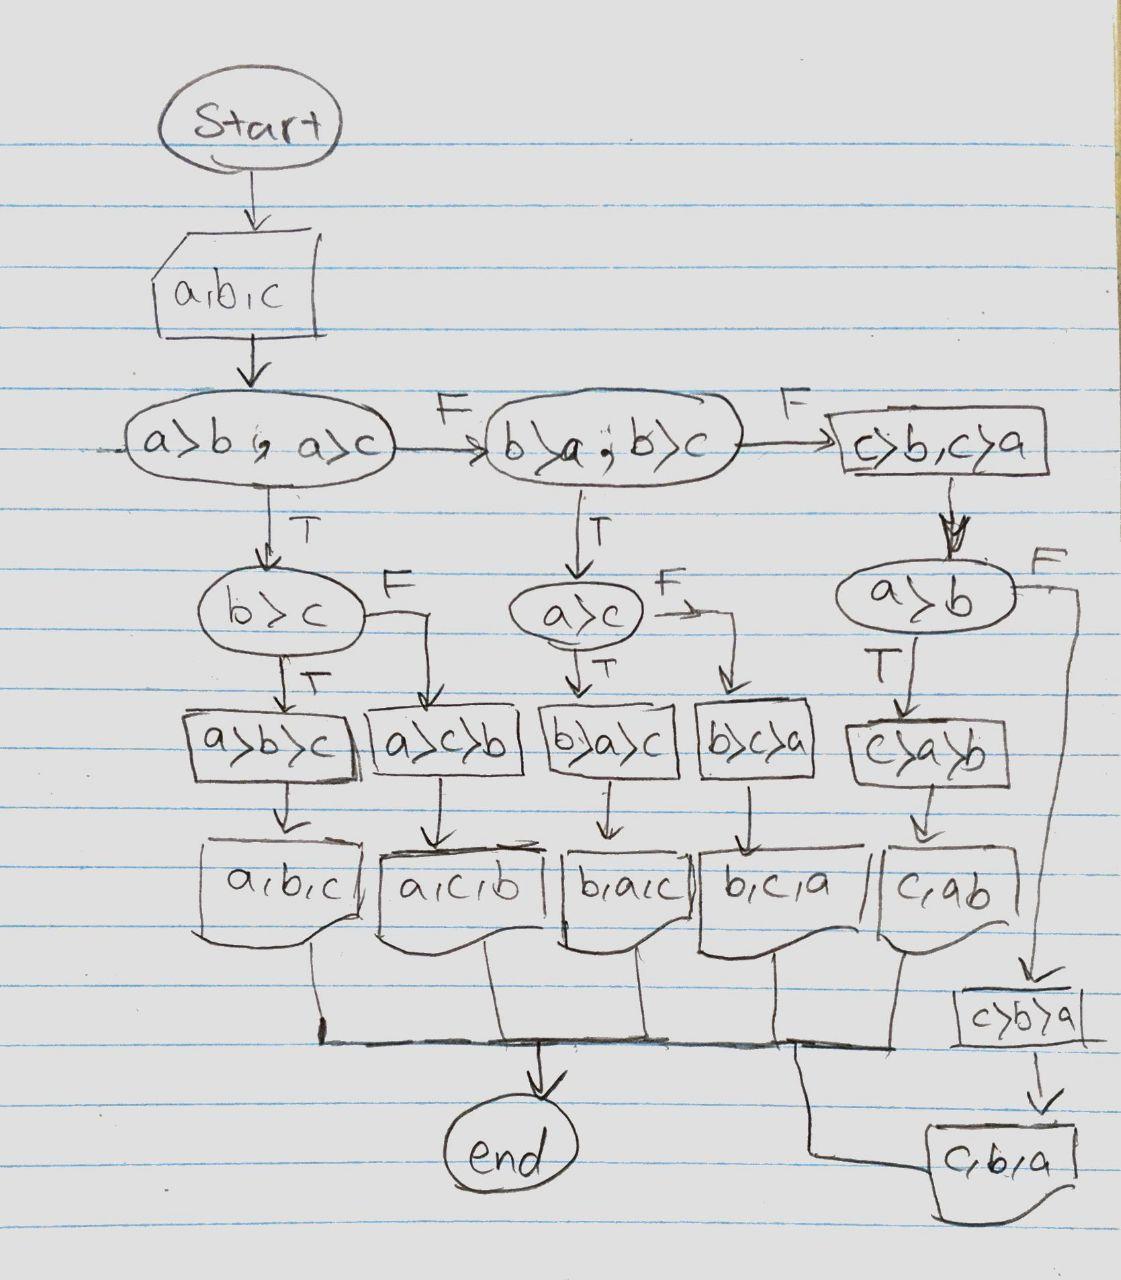 Start
a,b,c
a>b ; a>c F b>a ; b>c F c>b,c>a
T T
b>c F a>c F a>b F
T T T
a>b>c a>c>b b>a>c b>c>a c>a>b
a,b,c a,c,b b,a,c b,c,a c,ab
c>b>a
end c,b,a